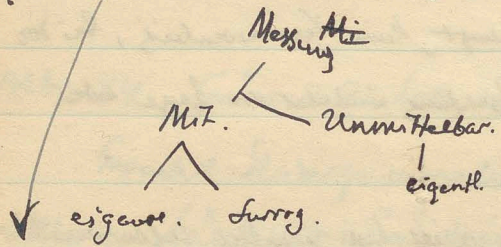 Messung
Mit. Unmittelbar.
eigentl.
eigentl. Surrog.